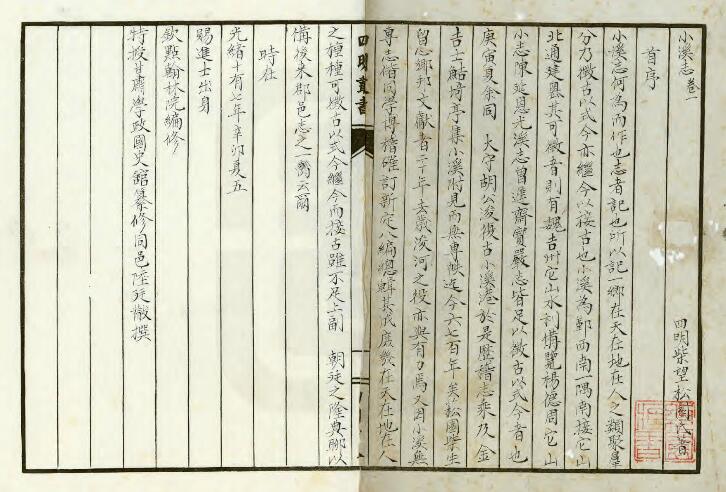 小溪志卷一
四明柴望松園氏著
首序
小溪志何為而作也志者記也所以記一鄉在天在地在人之類聚羣
分乃徵古以式今亦繼今以接古也小溪為鄞西南一隅南接它山
北通建嶴其可徵者則有魏吉州它山水利備覽楊德周它山
小志陳延恩光溪志曾進齋寶嚴志皆足以徵古以式今者也
庚寅夏余同 太守胡公浚復古小溪港於是歷稽志乘及金
吉士鮚埼亭集小溪附見而無專帙迄今六七百年矣松園柴生
留志鄉邦文獻者二十年去歲浚河之役亦與有力焉又因小溪無
專志偕同學博稽確訂新定八編總輯其成庶幾在天在地在人
之種種可徵古以式今繼今而接古雖不足上副 朝廷之隆典聊以
備後來郡邑志之一臠云爾
時在
光緒十有七年辛卯夏五
賜進士出身
欽點翰林院編修
特授甘肅學政國史館纂修同邑陸廷黻撰
四明叢書